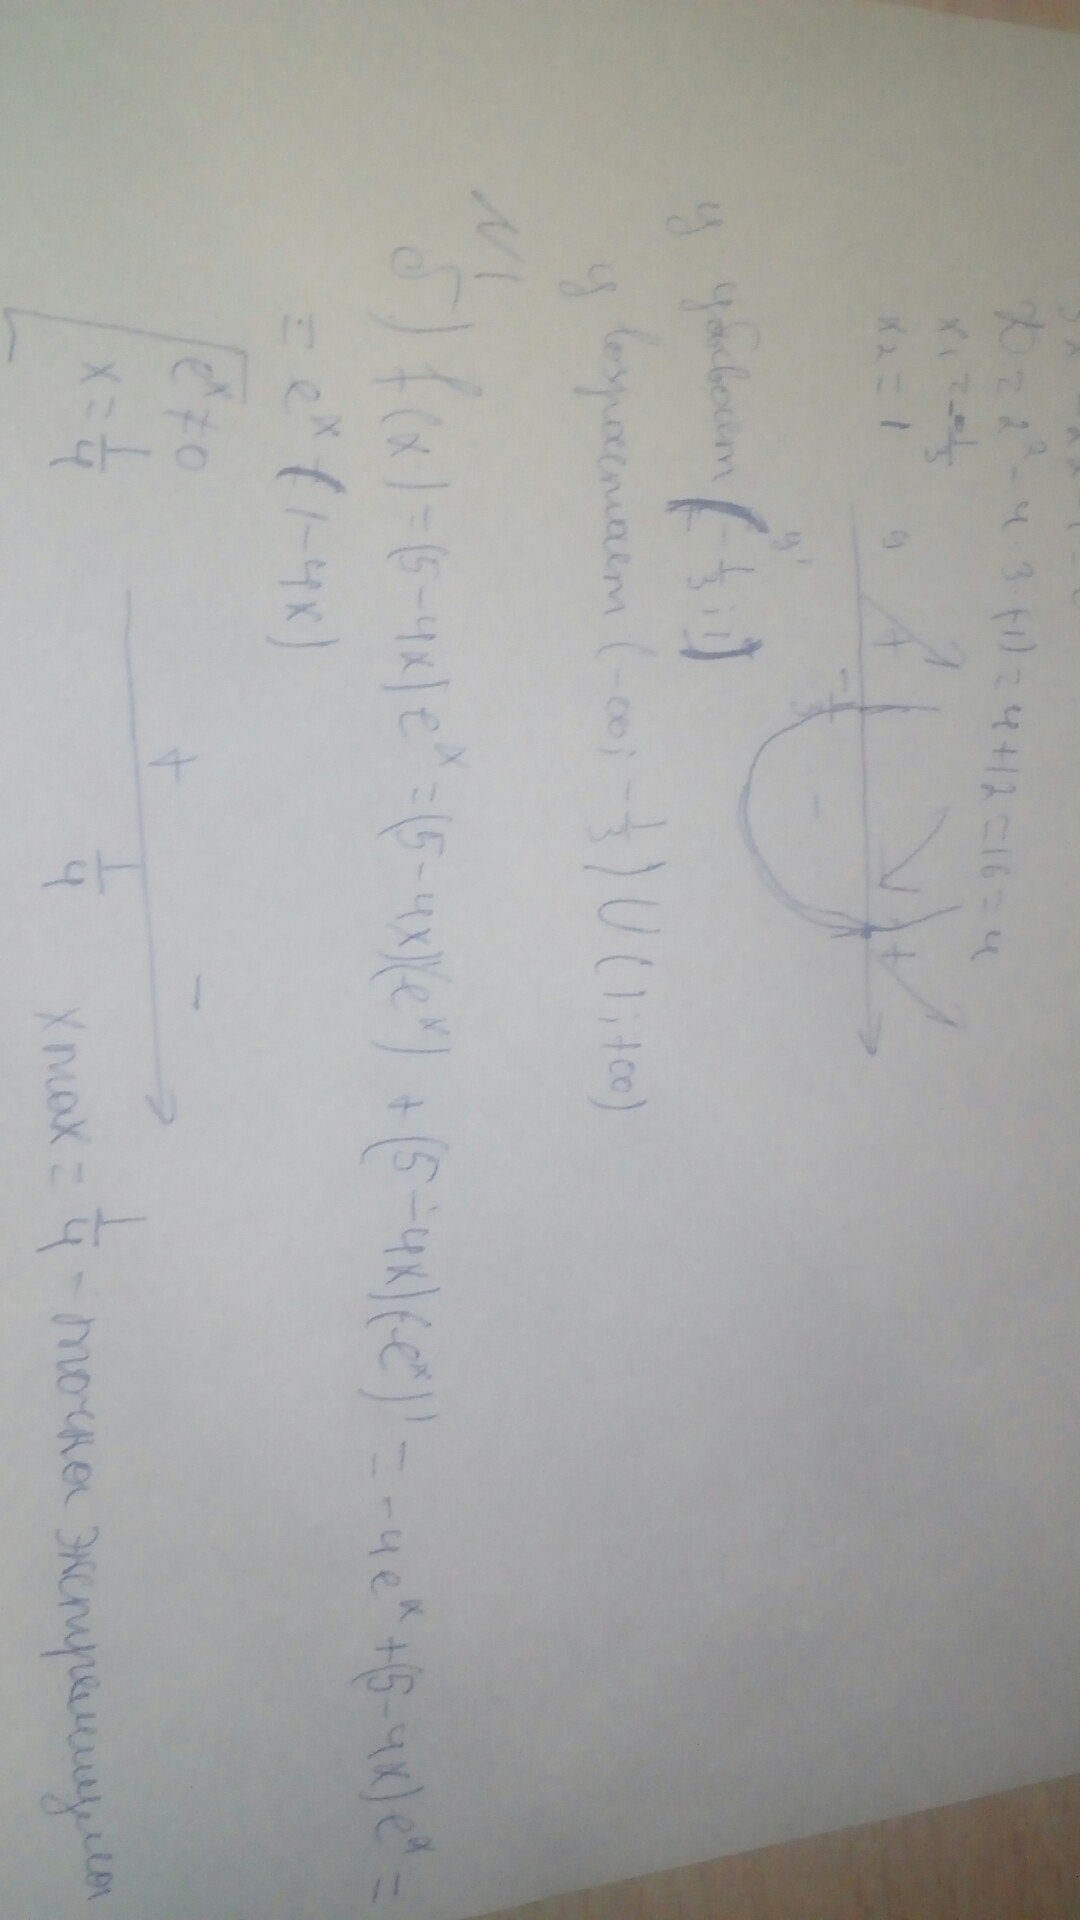 D = 2² - 4 · 3 · (-1) = 4 + 12 = 16 = 4
x₁ = -1/3
x₂ = 1
y + - +
y' -1/3
y убывает (-1/3; 1)
y возрастает (-∞; -1/3) ∪ (1; +∞)
N1
б) f(x) = (5-4x)e^x = (5-4x)(e^x) + (5-4x)(e^x)' = -4e^x + (5-4x)e^x =
= e^x (1-4x)
e^x ≠ 0
x = 1/4
+ -
1/4
x max = 1/4 - точка экстремума